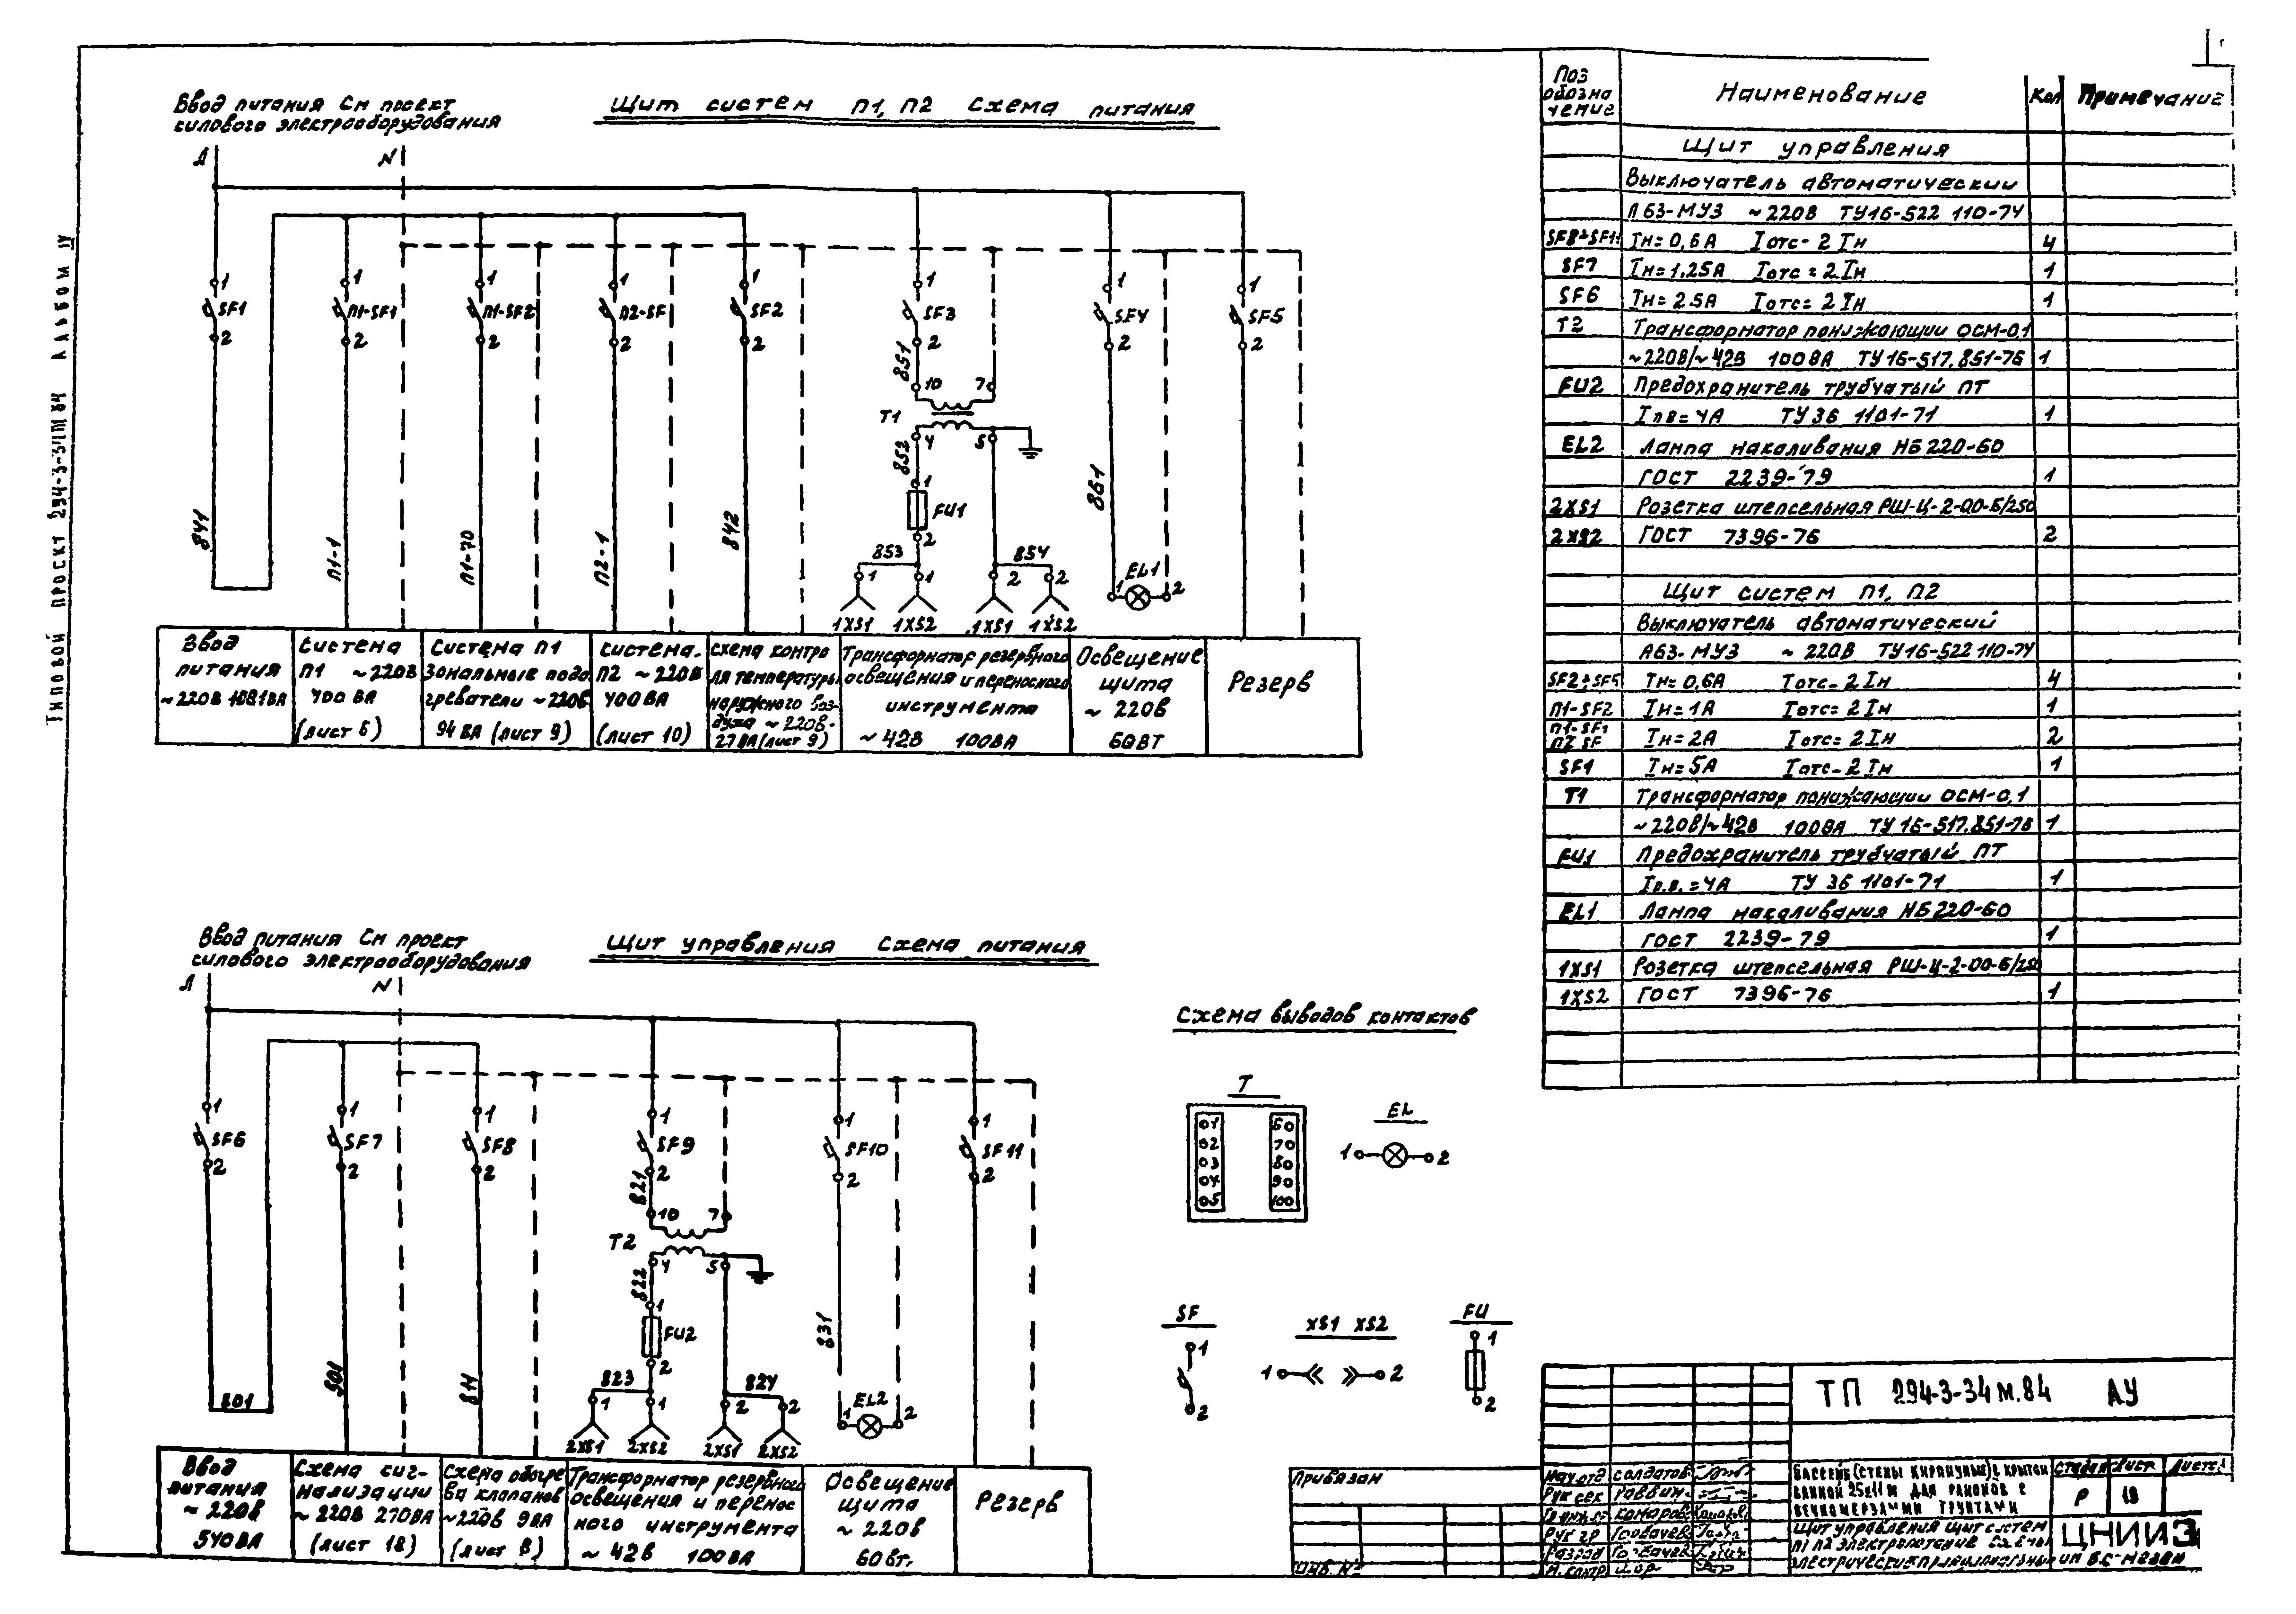 Типовой проект 294-3-34М 84 Альбом IV
Щит систем П1, П2 Схема питания
Ввод питания См проект
силового электрооборудования
А
N
1 1 1 1 1 1 1 1
SF1 П1-SF1 П1-SF2 П2-SF SF2 SF3 SF4 SF5
2 2 2 2 2 2 2 2
851
10 7
Т1
4 5
852
1
FU1
2
841 П1-1 П1-70 П2-1 842 861
853 854
1 1 2 2
EL1
1 2
1XS1 1XS2 1XS1 1XS2
Ввод
питания
~220В
Система
П1 ~220В
400 ВА
(лист 6)
Система П1
Зональные подо
греватели ~220В
94 ВА (лист 9)
Система
П2 ~220В
400ВА
(лист 10)
Схема контро
ля температуры
наружного воз-
духа ~220В-
27ВА(лист 9)
Трансформатор резервного
освещения и переносного
инструмента
~42В 100ВА
Освещение
щита
~220В
60ВТ
Резерв
Щит управления Схема питания
Ввод питания См проект
силового электрооборудования
А
N
1 1 1 1 1 1
SF6 SF7 SF8 SF9 SF10 SF11
2 2 2 2 2 2
821
10 7
Т2
4 5
822
1
FU2
2
801 814 831
823 824
1 1 2 2
EL2
1 2
2XS1 2XS2 2XS1 2XS2
Ввод
питания
~220В
540ВА
Схема сиг-
нализации
~220В 270ВА
(лист 18)
Схема обогре
ва клапанов
~220В 9ВА
(лист 8)
Трансформатор резервного
освещения и перенос
ного инструмента
~42В 100ВА
Освещение
щита
~220В
60Вт.
Резерв
Схема выводов контактов
Т
1 6
2 7
3 8
4 9
5 10
EL
1 2
SF
1
2
XS1 XS2
1 2
FU
1
2
Поз обозна чение Наименование Кол Примечание
Щит управления
Выключатель автоматический
А63-МУ3 ~220В ТУ16-522 110-74
SF8÷SF11 Iн=0,6А Iотс-2Iн 4
SF7 Iн=1,25А Iотс=2Iн 1
SF6 Iн=2.5А Iотс=2Iн 1
Т2 Трансформатор понижающий ОСМ-0,1
~220В/~42В 100ВА ТУ16-517.851-76 1
FU2 Предохранитель трубчатый ПТ
Iп в=4А ТУ36 1101-71 1
EL2 Лампа накаливания НБ220-60
ГОСТ 2239-79 1
2XS1 Розетка штепсельная РШ-Ц-2-0,0-6/250
2XS2 ГОСТ 7396-76 2
Щит систем П1, П2
Выключатель автоматический
А63-МУ3 ~220В ТУ16-522 110-74
SF2÷SF5 Iн=0,6А Iотс-2Iн 4
П1-SF2 Iн=1А Iотс=2Iн 1
П1-SF1
П2 SF Iн=2А Iотс=2Iн 2
SF1 Iн=5А Iотс-2Iн 1
Т1 Трансформатор понижающий ОСМ-0,1
~220В/~42В 100ВА ТУ16-517.851-76 1
FU1 Предохранитель трубчатый ПТ
Iп.в.=4А ТУ 36 1101-71 1
EL1 Лампа накаливания НБ220-60
ГОСТ 2239-79 1
1XS1 Розетка штепсельная РШ-Ц-2-00-6/250
1XS2 ГОСТ 7396-76 1
ТП 294-3-34М.84 АУ
Привязан
Инв. №
Нач отд Солдатов
Рук сек Раввин
Комаров
Рук гр Горбачев
Разраб Горбачев
Н. контр
Бассейн (стены кирпичные) с крытой
ванной 25х11м для районов с
вечномерзлыми грунтами
Стадия Лист Листов
Р 19
Щит управления Щит систем
П1 П2 Электропитание Схемы
электрические принципиальные
ЦНИИЭ
им Б.С. Мезен